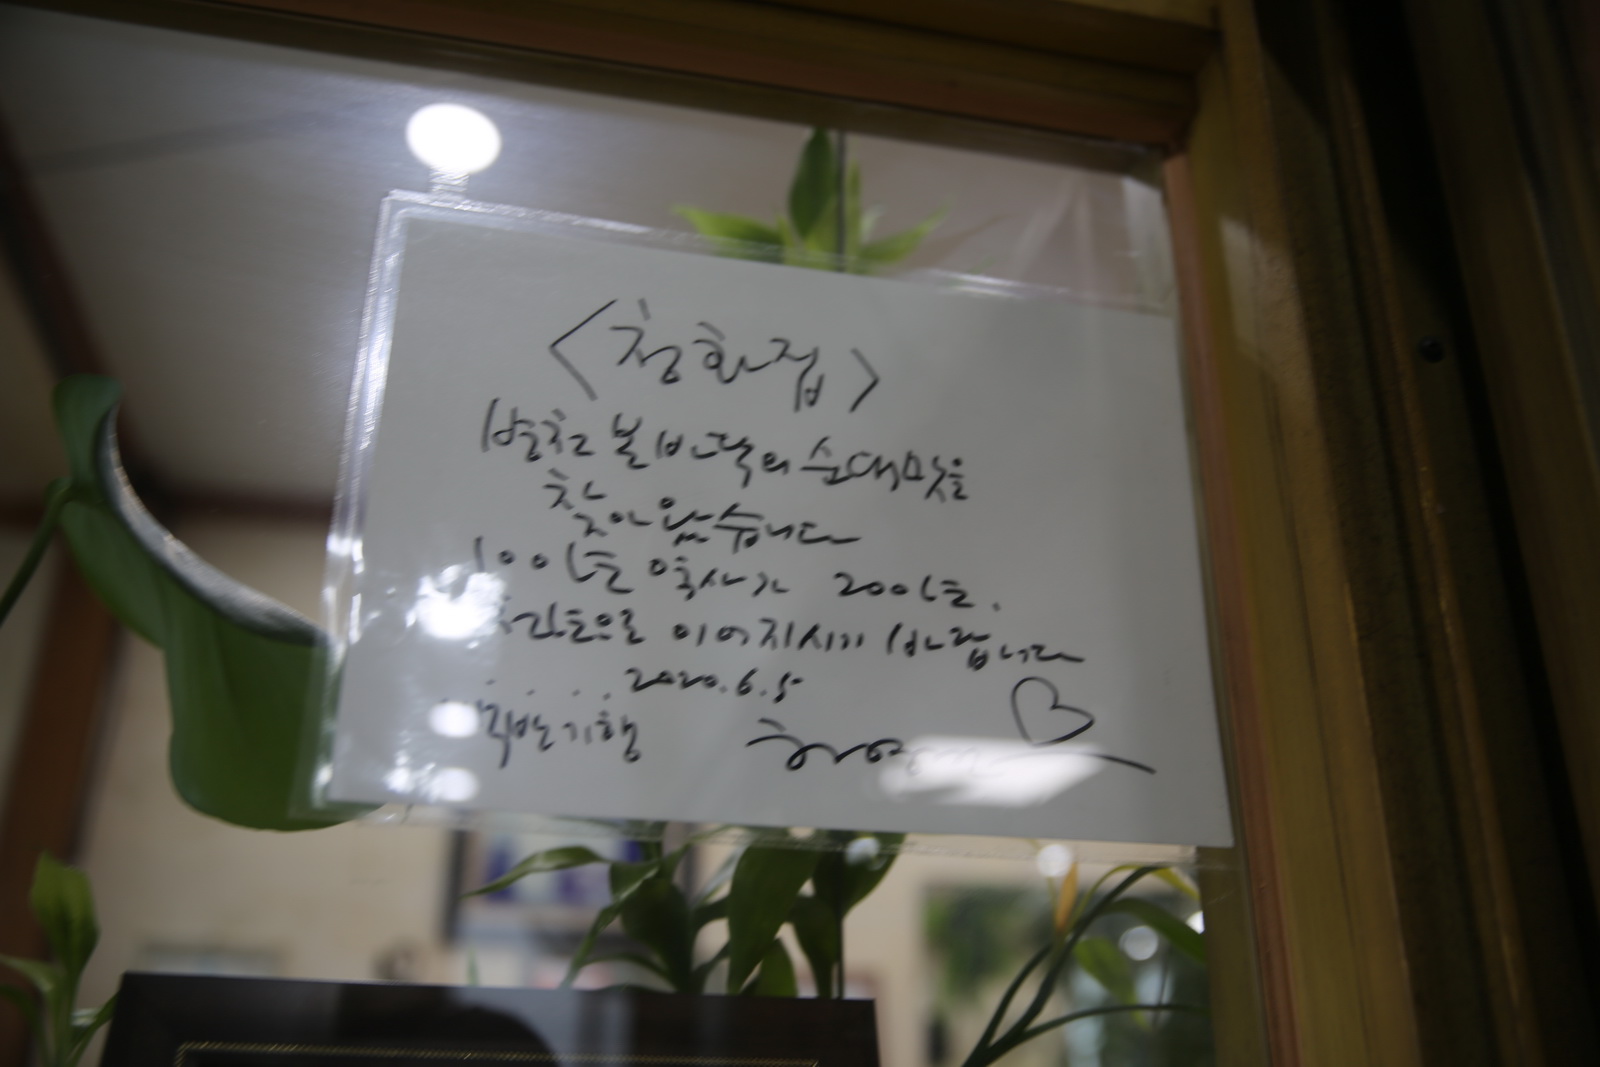 <청화집>
병천 본바닥의 순대맛을
찾아왔습니다
100년 역사가 200년.
천년으로 이어지시기 바랍니다
2020.6.5
백반기행 허영만